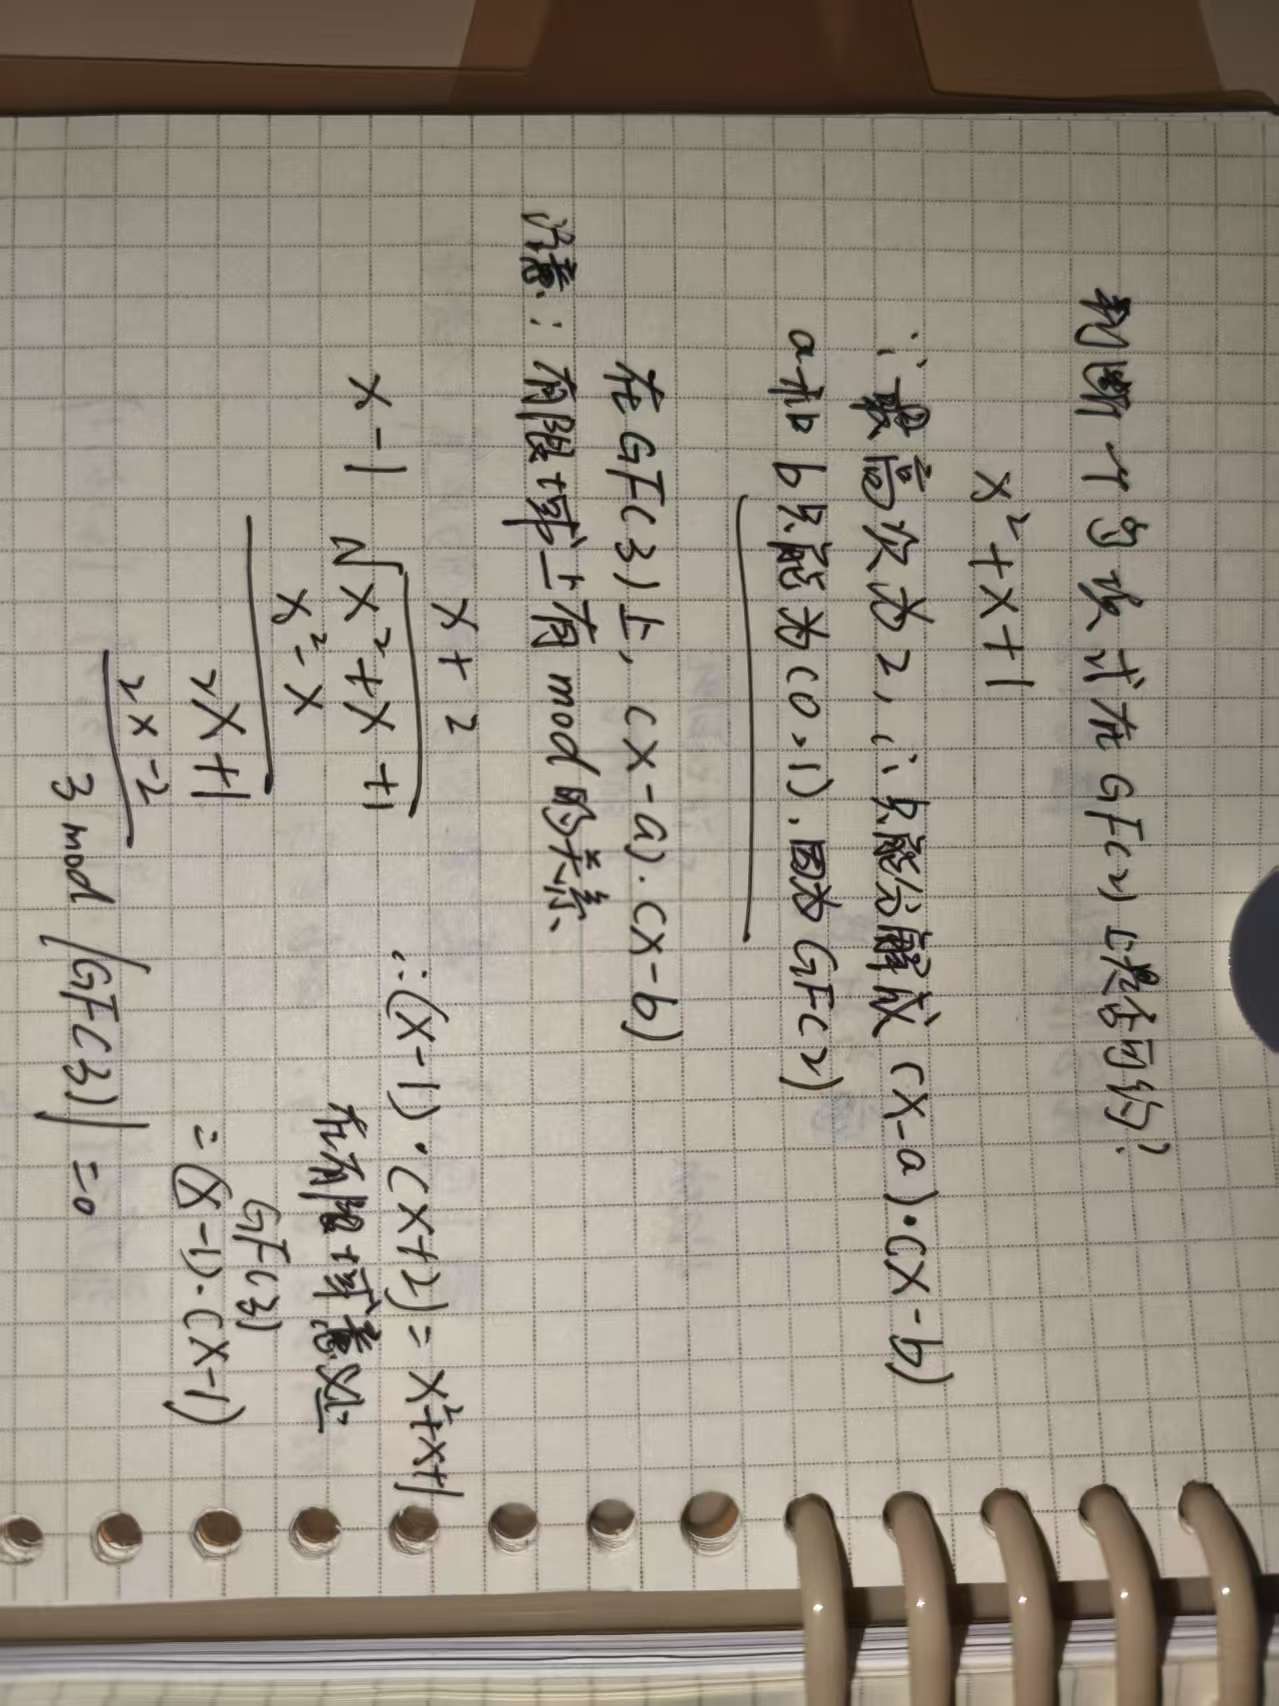 判断一个多项式在GF(2)上是否可约?
x²+x+1
∵最高次为2,∴只能分解成(x-a)·(x-b)
a和b只能为(0、1).因为GF(2)
在GF(3)上,(x-a)·(x-b)
注意:有限域上有mod的关系、
x+2
x-1 √x²+x+1
x²-x
2x+1
2x-2
3 mod |GF(3)| =0
∴(x-1)·(x+2)=x²+x+1
在有限域意义
GF(3)
=(x-1)·(x-1)